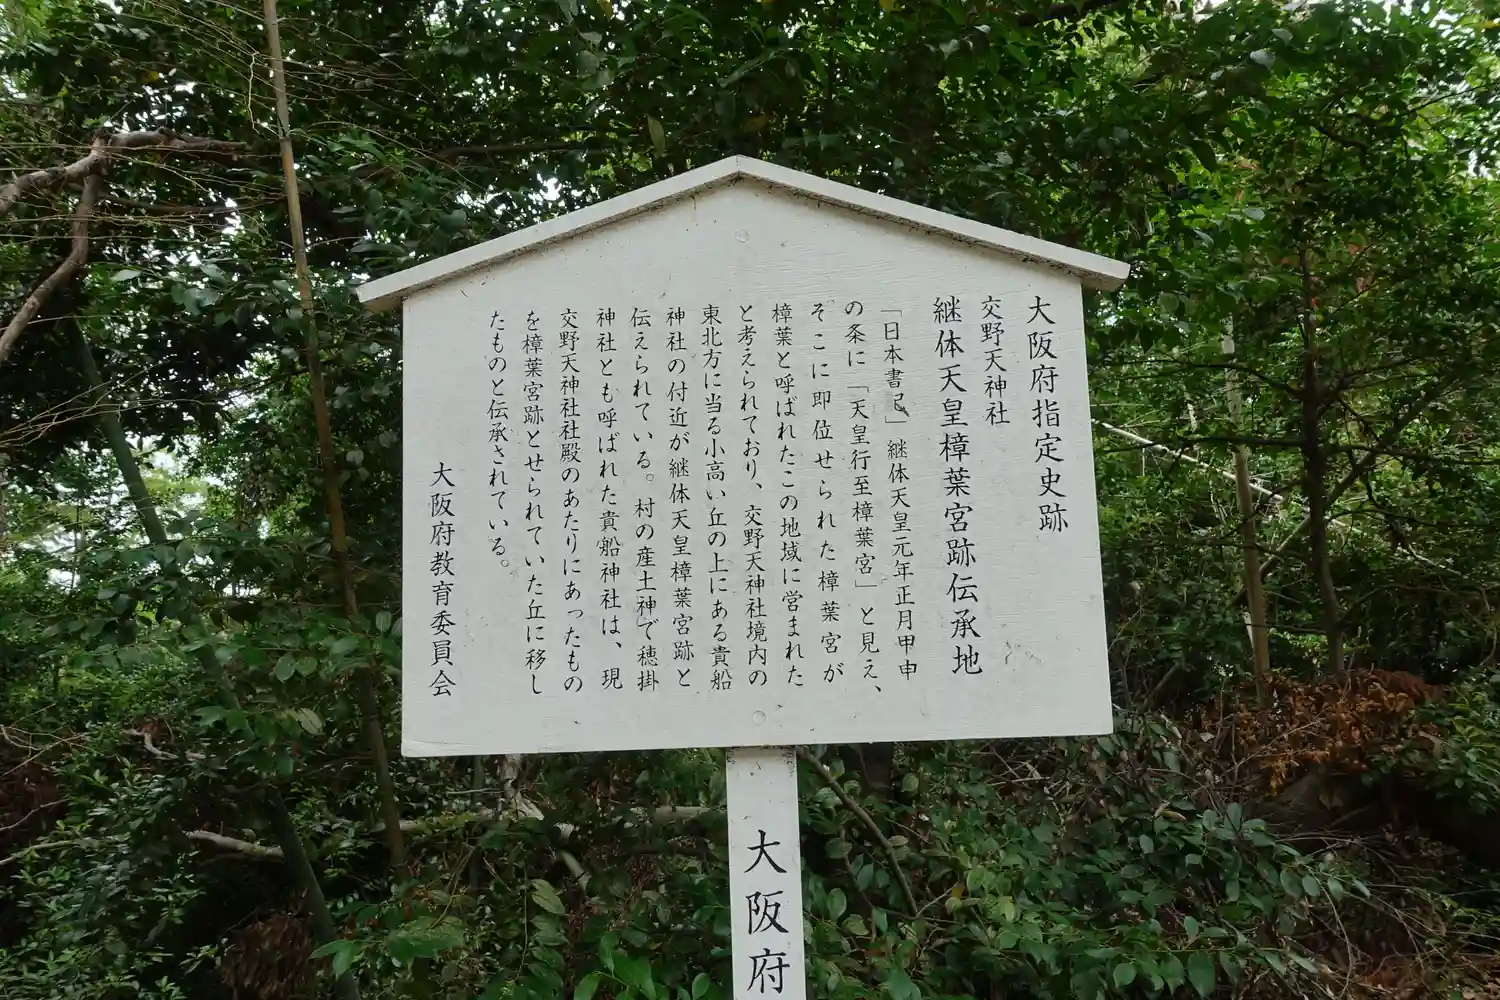 大阪府指定史跡
交野天神社
継体天皇樟葉宮跡伝承地
「日本書紀」継体天皇元年正月甲申
の条に「天皇行至樟葉宮」と見え、
そこに即位せられた樟葉宮が
樟葉と呼ばれたこの地域に営まれた
と考えられており、交野天神社境内の
東北方に当る小高い丘の上にある貴船
神社の付近が継体天皇樟葉宮跡と
伝えられている。村の産土神で穂掛
神社とも呼ばれた貴船神社は、現
交野天神社社殿のあたりにあったもの
を樟葉宮跡とせられていた丘に移し
たものと伝承されている。
大阪府教育委員会
大阪府